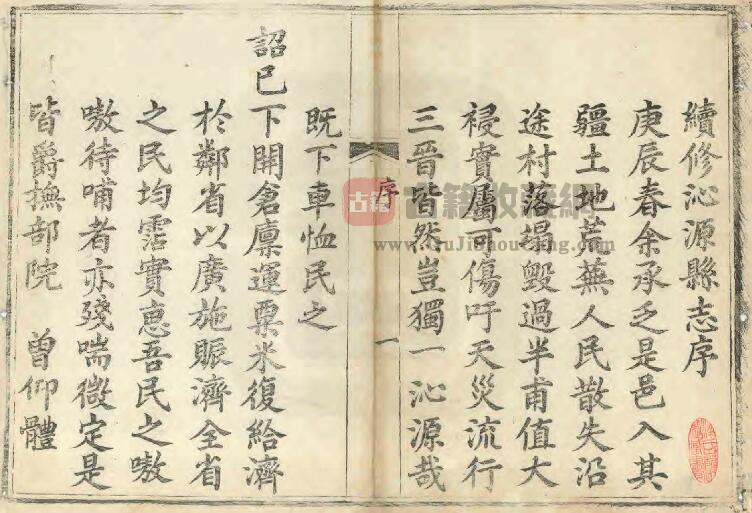 續修沁源縣志序
庚辰春余承乏是邑入其
疆土地荒蕪人民散失沿
途村落塌毀過半甫值大
祲實屬可傷吁天災流行
三晉皆然豈獨一沁源哉
序
一
既下車恤民之
詔已下開倉廩運粟米復給濟
於鄰省以廣施賑濟全省
之民均霑實惠吾民之嗷
嗷待哺者亦殘喘微定是
皆爵撫部院 曾仰體
古籍收藏網
www.GuJiShouCang.com